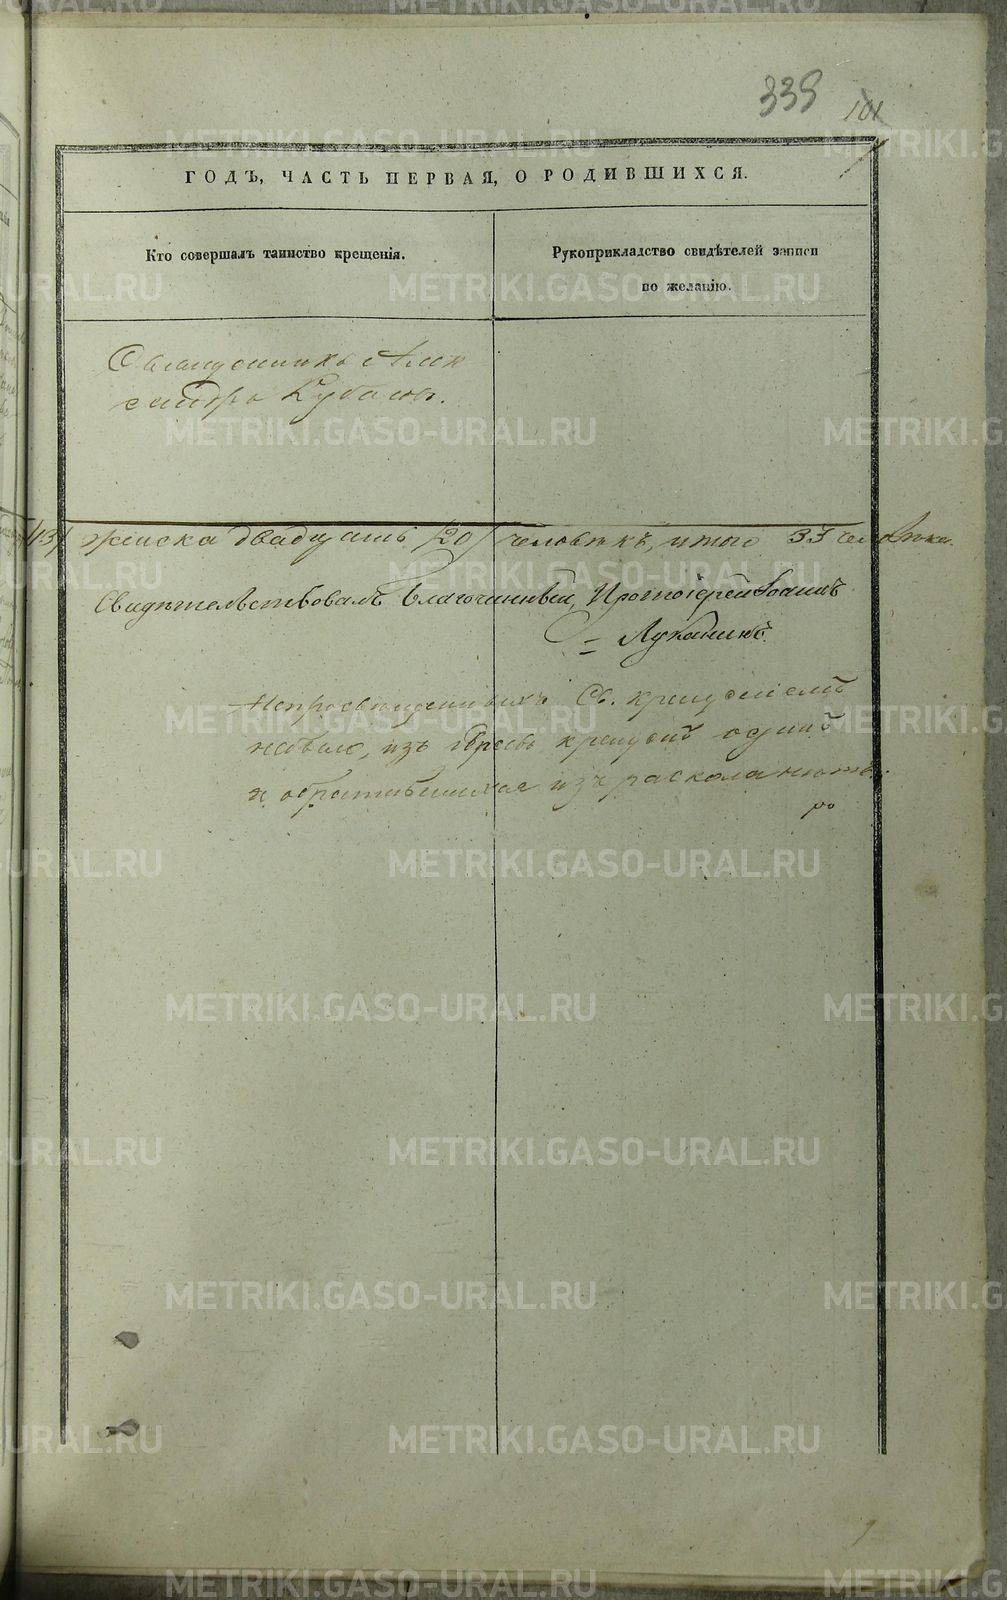 339 101
ГОДЪ, ЧАСТЬ ПЕРВАЯ, О РОДИВШИХСЯ.
Кто совершалъ таинство крещенія.
Рукоприкладство свидѣтелей записи
по желанію.
Священникъ Алек
сандръ
13/ женска двадцать /20/ человѣкъ, итого 33 человѣка.
Свидѣтельствовалъ Благочинный, Протоіерей Іоаннъ
Луканинъ
Непросвѣщенныхъ Св. крещеніемъ
небыло, изъ крещенъ одинъ
и обратившихся изъ раскола
METRIKI.GASO-URAL.RU